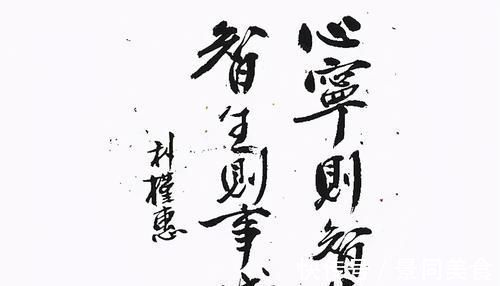 心寧則智
智生則事
朴槿惠
快传号 / 景同美食